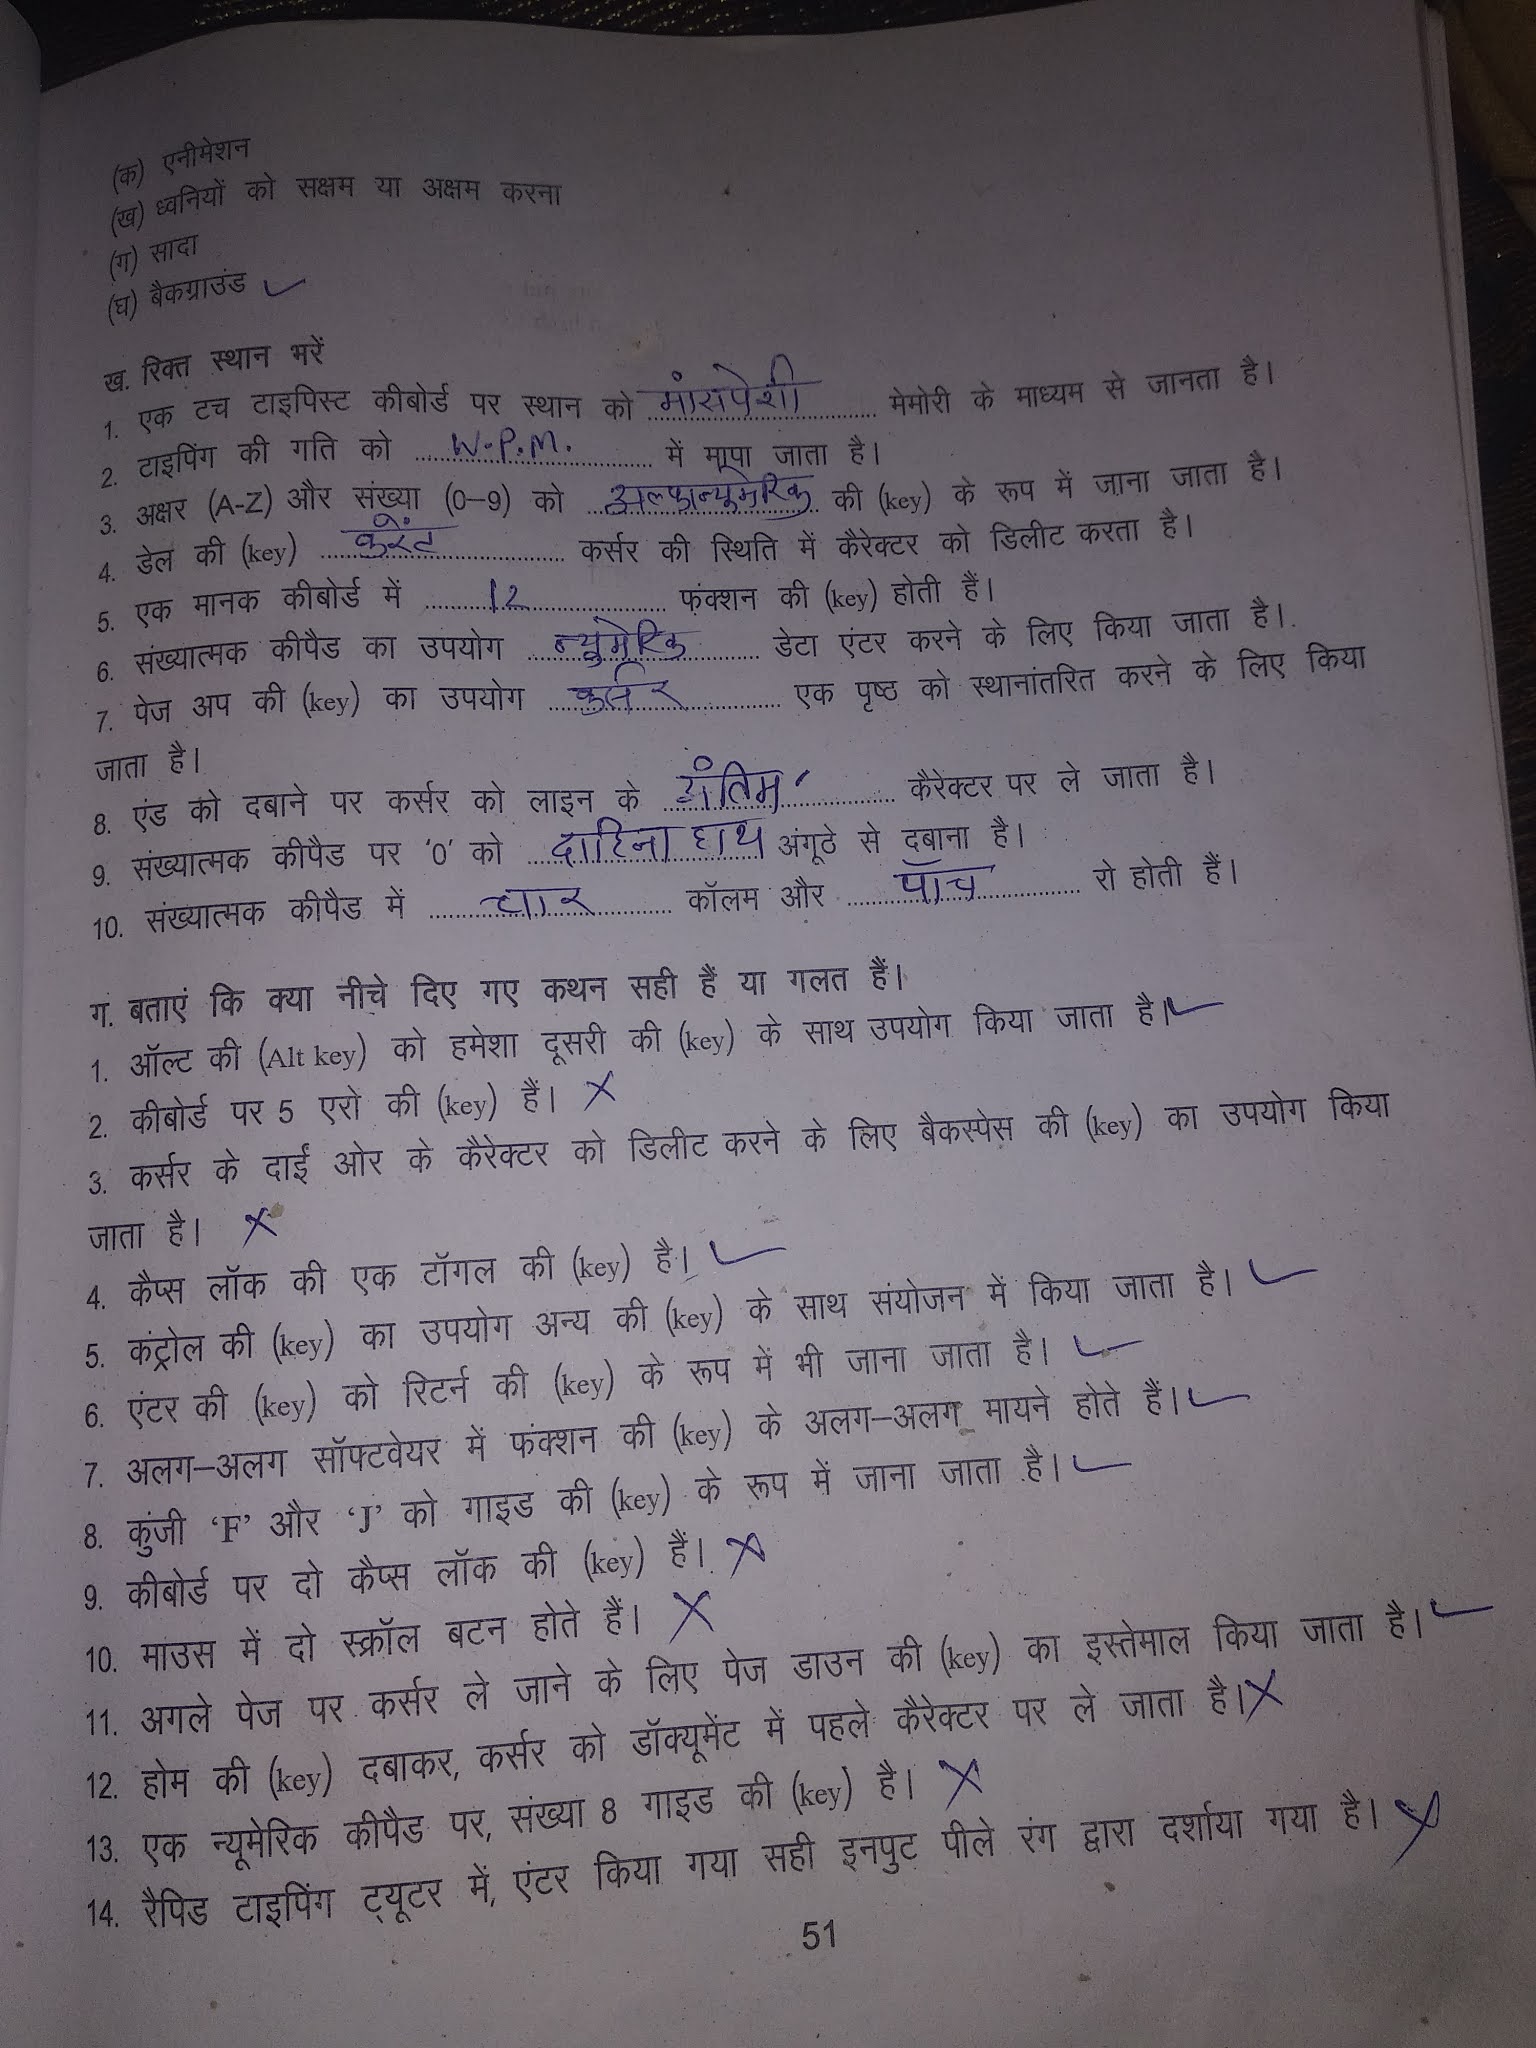 (क) एनीमेशन
(ख) ध्वनियों को सक्षम या अक्षम करना
(ग) सादा
(घ) बैकग्राउंड ✓
ख. रिक्त स्थान भरें
1. एक टच टाइपिस्ट कीबोर्ड पर स्थान को मांसपेशी मेमोरी के माध्यम से जानता है।
2. टाइपिंग की गति को W.P.M. में मापा जाता है।
3. अक्षर (A-Z) और संख्या (0–9) को अल्फान्यूमेरिक की (key) के रूप में जाना जाता है।
4. डेल की (key) करेंट कर्सर की स्थिति में कैरेक्टर को डिलीट करता है।
5. एक मानक कीबोर्ड में 12 फंक्शन की (key) होती हैं।
6. संख्यात्मक कीपैड का उपयोग न्यूमेरिक डेटा एंटर करने के लिए किया जाता है।
7. पेज अप की (key) का उपयोग कर्सर एक पृष्ठ को स्थानांतरित करने के लिए किया
जाता है।
8. एंड को दबाने पर कर्सर को लाइन के अंतिम कैरेक्टर पर ले जाता है।
9. संख्यात्मक कीपैड पर '0' को दाहिना हाथ अंगूठे से दबाना है।
10. संख्यात्मक कीपैड में चार कॉलम और पाँच रो होती हैं।
ग. बताएं कि क्या नीचे दिए गए कथन सही हैं या गलत हैं।
1. ऑल्ट की (Alt key) को हमेशा दूसरी की (key) के साथ उपयोग किया जाता है। ✓
2. कीबोर्ड पर 5 एरो की (key) हैं। ✗
3. कर्सर के दाईं ओर के कैरेक्टर को डिलीट करने के लिए बैकस्पेस की (key) का उपयोग किया
जाता है। ✗
4. कैप्स लॉक की एक टॉगल की (key) है। ✓
5. कंट्रोल की (key) का उपयोग अन्य की (key) के साथ संयोजन में किया जाता है। ✓
6. एंटर की (key) को रिटर्न की (key) के रूप में भी जाना जाता है। ✓
7. अलग–अलग सॉफ्टवेयर में फंक्शन की (key) के अलग–अलग मायने होते हैं। ✓
8. कुंजी 'F' और 'J' को गाइड की (key) के रूप में जाना जाता है। ✓
9. कीबोर्ड पर दो कैप्स लॉक की (key) हैं। ✗
10. माउस में दो स्क्रॉल बटन होते हैं। ✗
11. अगले पेज पर कर्सर ले जाने के लिए पेज डाउन की (key) का इस्तेमाल किया जाता है। ✓
12. होम की (key) दबाकर, कर्सर को डॉक्यूमेंट में पहले कैरेक्टर पर ले जाता है। ✗
13. एक न्यूमेरिक कीपैड पर, संख्या 8 गाइड की (key) है। ✗
14. रैपिड टाइपिंग ट्यूटर में, एंटर किया गया सही इनपुट पीले रंग द्वारा दर्शाया गया है। ✗
51